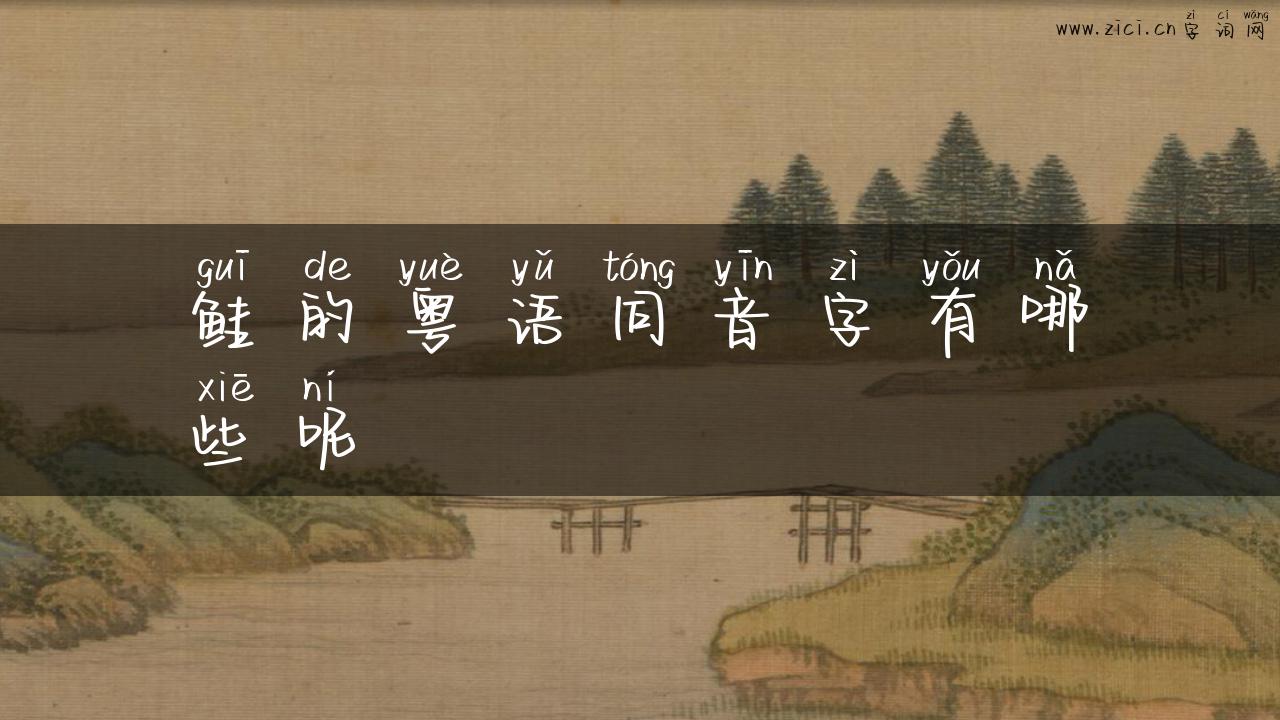 www.zici.cn
zì cí wǎng
字词网
guī de yuè yǔ tóng yīn zì yǒu nǎ
鲑的粤语同音字有哪
xiē ní
些呢